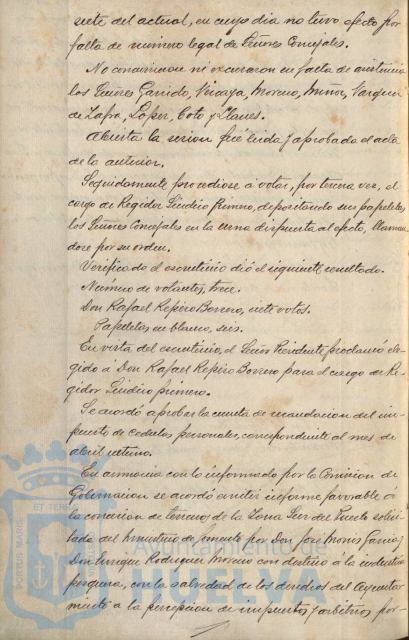 siete del actual, en cuyo dia no tuvo efecto por
falta de número legal de Señores Concejales.
No concurrieron ni excusaron su falta de asistencia
los Señores Garrido, Vizcaya, Moreno, Muñoz, Vazquez
de Zafra, Lopez, Coto y Llanes.
Abierta la sesion fué leida y aprobada el acta
de la anterior.
Seguidamente procediose á votar, por tercera vez, el
cargo de Regidor Síndico Primero, depositando sus papeletas
los Señores Concejales en la urna dispuesta al efecto, llaman
dose por su orden.
Verificado el escrutinio dió el siguiente resultado.
Número de votantes, trece.
Don Rafael Repiso Borrero, siete votos.
Papeletas en blanco, seis.
En vista del escrutinio, el Señor Presidente proclamó ele-
gido á Don Rafael Repiso Borrero para el cargo de Re-
gidor Síndico primero.
Se acordó aprobar la cuenta de recaudacion del im-
puesto de cedulas personales, correspondiente al mes de
abril último.
En armonia con lo informado por la Comision de
Gobernacion se acordó emitir informe favorable á
la concesion de terrenos de la Zona Sur del Puerto solici
tada del Ministerio de Fomento por Don José
Don Enrique Rodriguez Moreno con destino á la industria
pesquera, con la salvedad de los derechos del Ayunta-
miento á la percepcion de impuestos y arbitrios, por-
PORTUS MARIS
ET TERRÆ
Ayuntamiento de
HUELVA